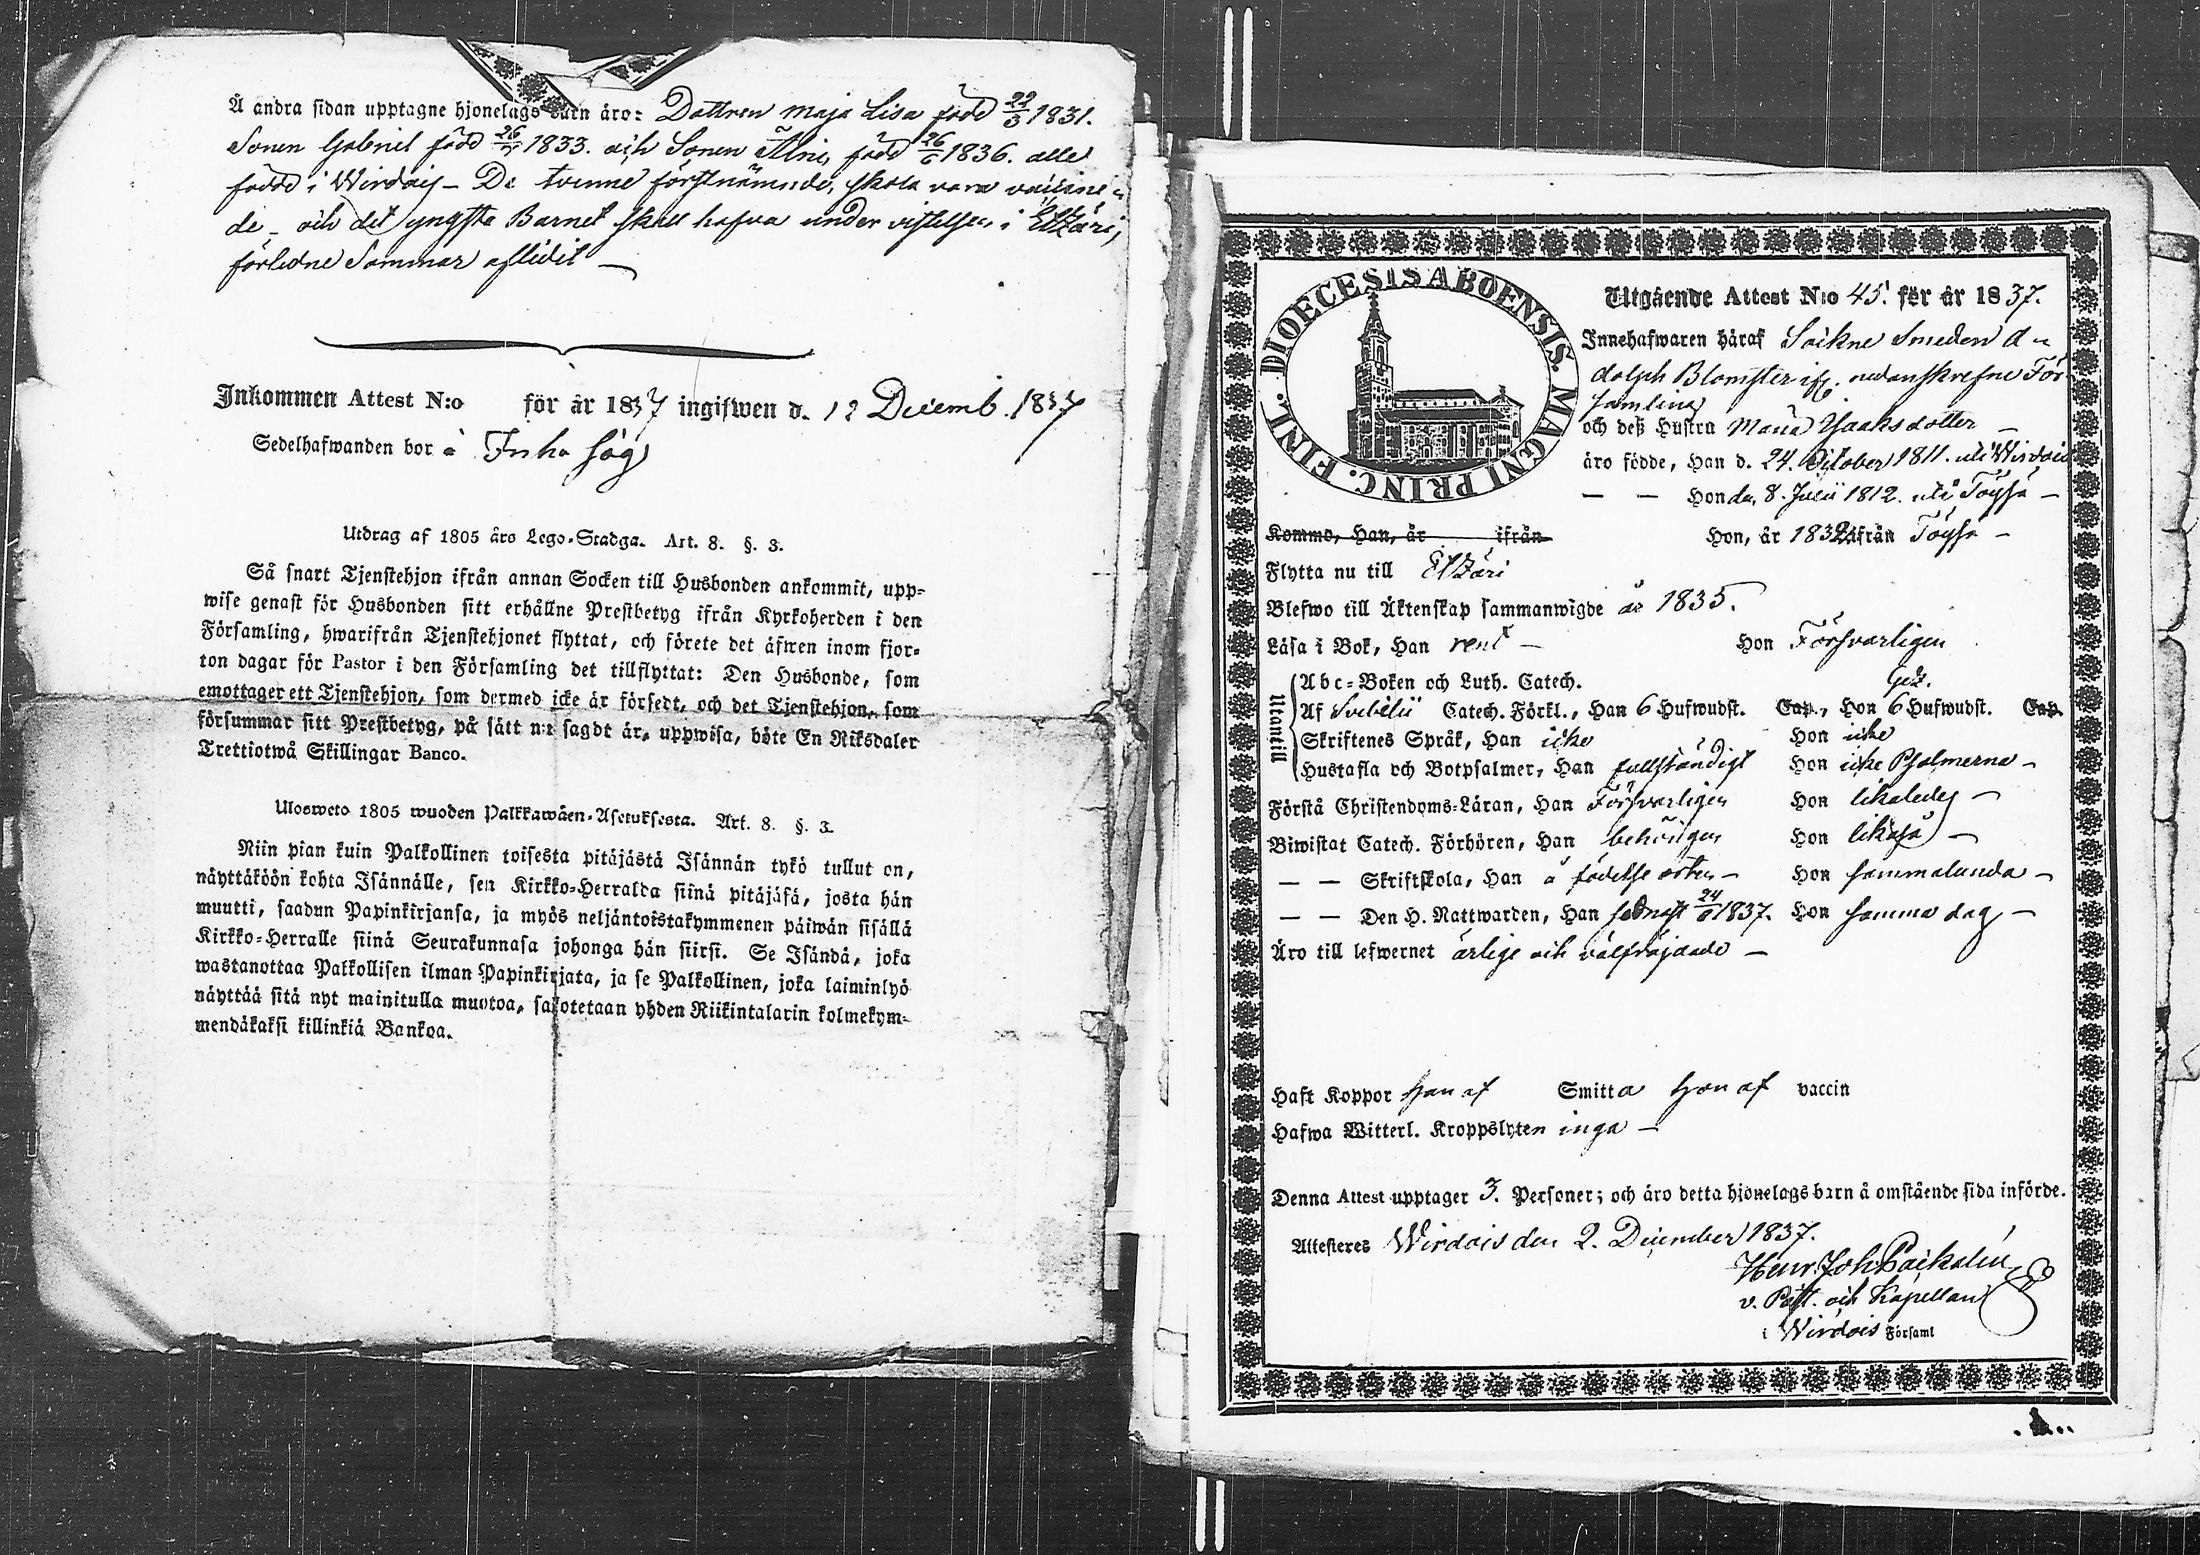 Å andra sidan upptagne hjonelags barn äro: Dottren Maja Lisa född 22/3 1831.
Sonen Gabriel född 1833. och Sonen född 26/6 1836. alle
födde i Wirdois – De tvenne förstnämnde, skola vara vaccine-
de – och det yngsta Barnet skall hafva under vistelsen i Etzäri,
förledne Sommar aflidit —
Inkommen Attest N:o för år 1837 ingifwen d. 12 Decemb. 1837
Sedelhafwanden bor å Inha såg
Utdrag af 1805 års Lego-Stadga. Art. 8. §. 3.
Så snart Tjenstehjon ifrån annan Socken till Husbonden ankommit, upp-
wise genast för Husbonden sitt erhållne Prestbetyg ifrån Kyrkoherden i den
Församling, hwarifrån Tjenstehjonet flyttat, och förete det äfwen inom fjor-
ton dagar för Pastor i den Församling det tillflyttat: Den Husbonde, som
emottager ett Tjenstehjon, som dermed icke är försedt, och det Tjenstehjon, som
försummar sitt Prestbetyg, på sätt nu sagdt är, uppwisa, böte En Riksdaler
Trettiotwå Skillingar Banco.
Ulosweto 1805 wuoden Palkkawäen-Asetuksesta. Art. 8. §. 3.
Niin pian kuin Palkollinen toisesta pitäjästä Isännän tykö tullut on,
näyttäköön kohta Isännälle, sen Kirkko-Herralda siinä pitäjäsä, josta hän
muutti, saadun Papinkirjansa, ja myös neljäntoistakymmenen päiwän sisällä
Kirkko-Herralle siinä Seurakunnasa johonga hän siirsi. Se Isändä, joka
wastanottaa Palkollisen ilman Papinkirjata, ja se Palkollinen, joka laiminlyö
näyttää sitä nyt mainitulla muotoa, sakotetaan yhden Riikintalarin kolmekym-
mendäkaksi killinkiä Bankoa.
FINL. DIOECESIS ABOENSIS. MAGNI PRINC.
Utgående Attest N:o 45. för år 1837.
Innehafwaren häraf Sockne Smeden A-
dolph Blomster ifr. nedanskrefne För-
samling
och deß Hustru Maria Isaaksdotter —
äro födde, Han d. 24. October 1811. uti Wirdois
— — Hon den 8. Julii 1812. uti Töysä —
Kommo, Han, år ifrån Hon, år 1832 ifrån Töysä —
Flytta nu till Etzäri
Blefwo till Äktenskap sammanwigde år 1835.
Läsa i Bok, Han rent — Hon Försvarligen
Utantill
Abc-Boken och Luth. Catech.
Af Svebelii Catech. Förkl., Han 6 Hufwudst. Cap., Hon 6 Hufwudst. Cap.
Skriftenes Språk, Han icke Hon icke
Hustafla och Botpsalmer, Han fullständigt Hon icke Psalmerna —
Förstå Christendoms-Läran, Han Försvarligen Hon likaledes —
Biwistat Catech. Förhören, Han behörigen Hon likaså —
— — Skriftskola, Han å födelse orten — Hon sammalunda —
— — Den H. Nattwarden, Han sednast 1837. Hon samma dag —
Äro till lefwernet ärlige och välfräjdade —
Haft Koppor Han af Smitta Hon af vaccin
Hafwa Witterl. Kroppslyten inga —
Denna Attest upptager 3. Personer; och äro detta hjonelags barn å omstående sida införde.
Attesteres Wirdois den 2. December 1837.
Henr. Joh.
v. Past. och Kapellan
i Wirdois Församl